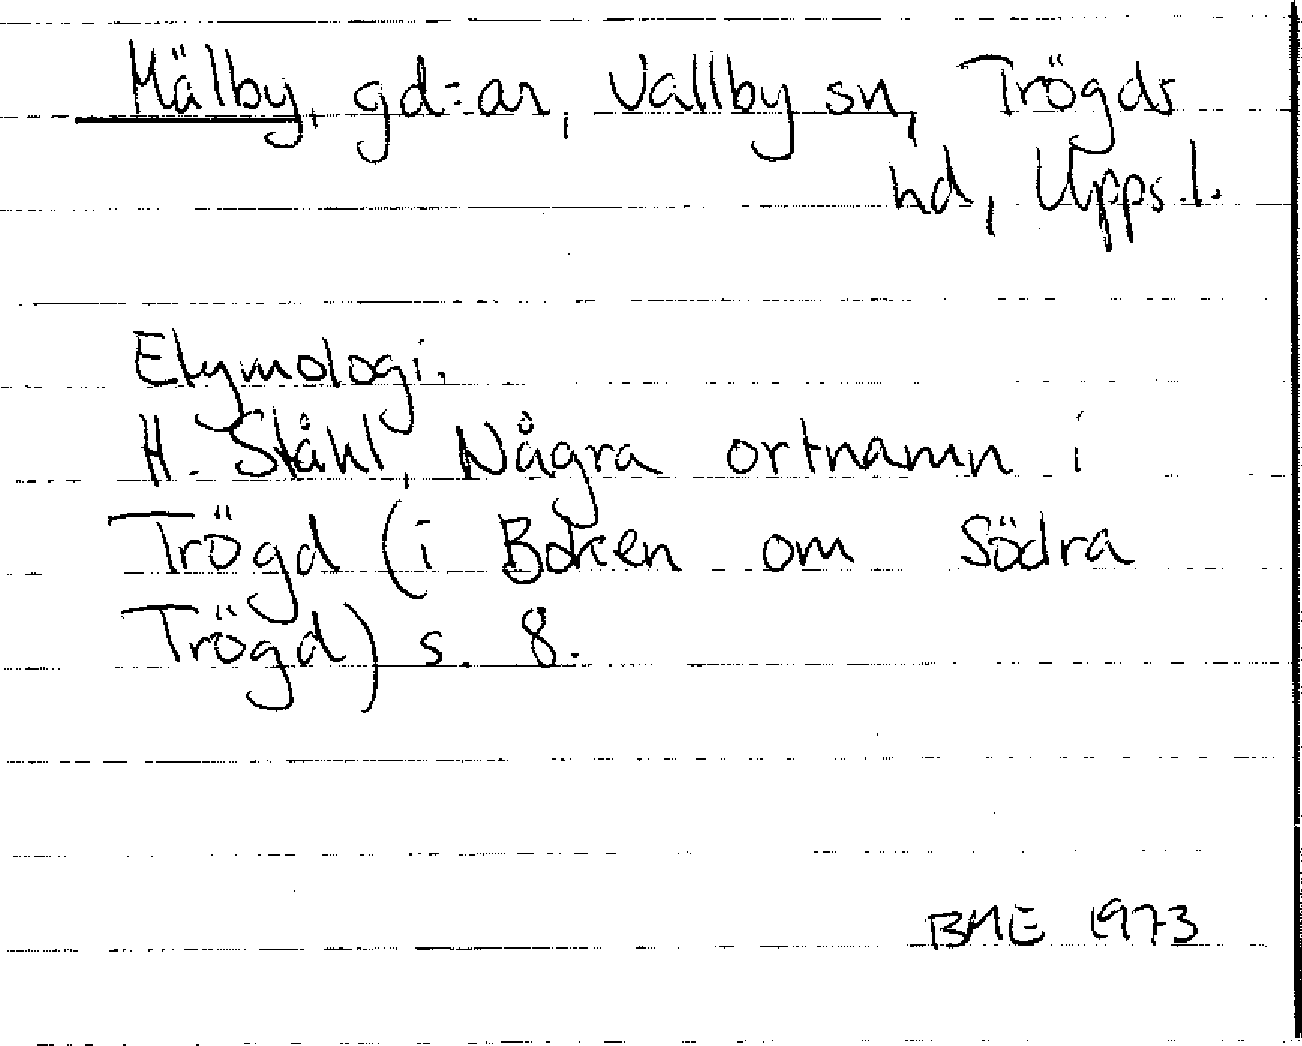 Mälby, gd=ar, Vallby sn, Trögds
hd, Upps.l.
Etymologi.
H. Ståhl, Några ortnamn i
Trögd (i Boken om Södra
Trögd) s. 8.
BME 1973